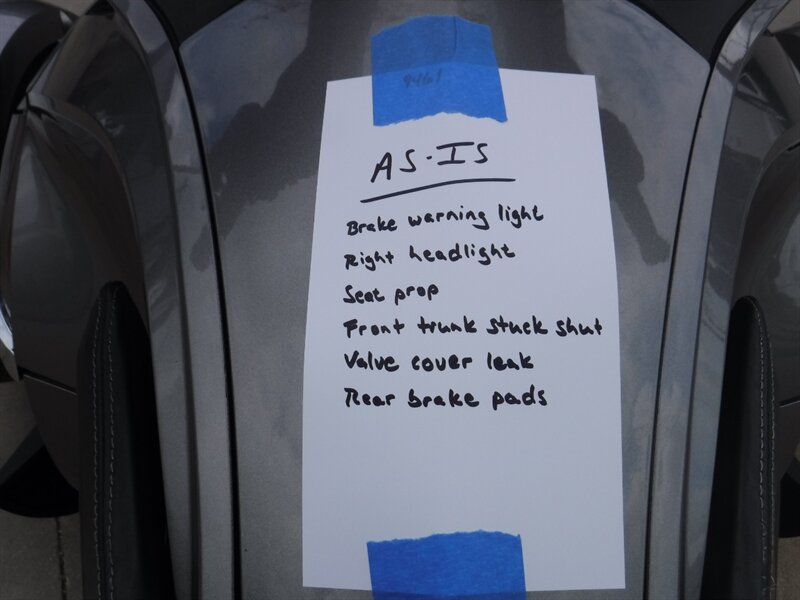 9461
AS-IS
Brake warning light
Right headlight
Seat prop
Front trunk stuck shut
Valve cover leak
Rear brake pads